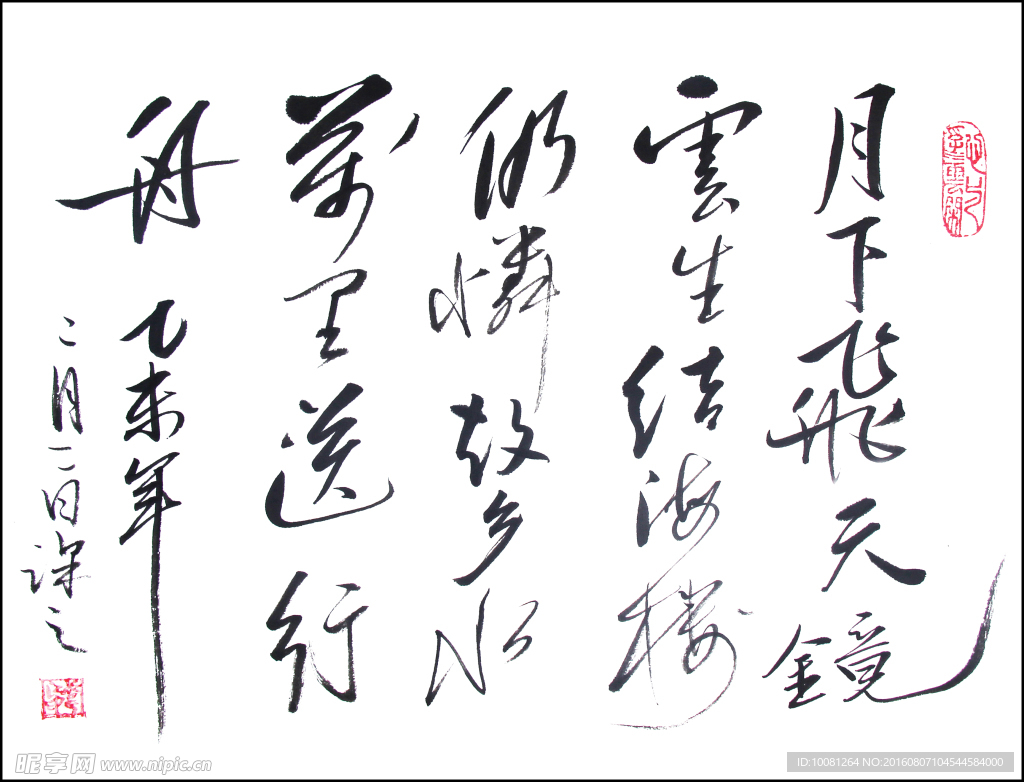 月下飛天鏡
雲生结海楼
仍憐故乡水
萬里送行
舟 乙未年
二月二日
昵享网 www.nipic.cn
ID:10081264 NO:20160807104544584000